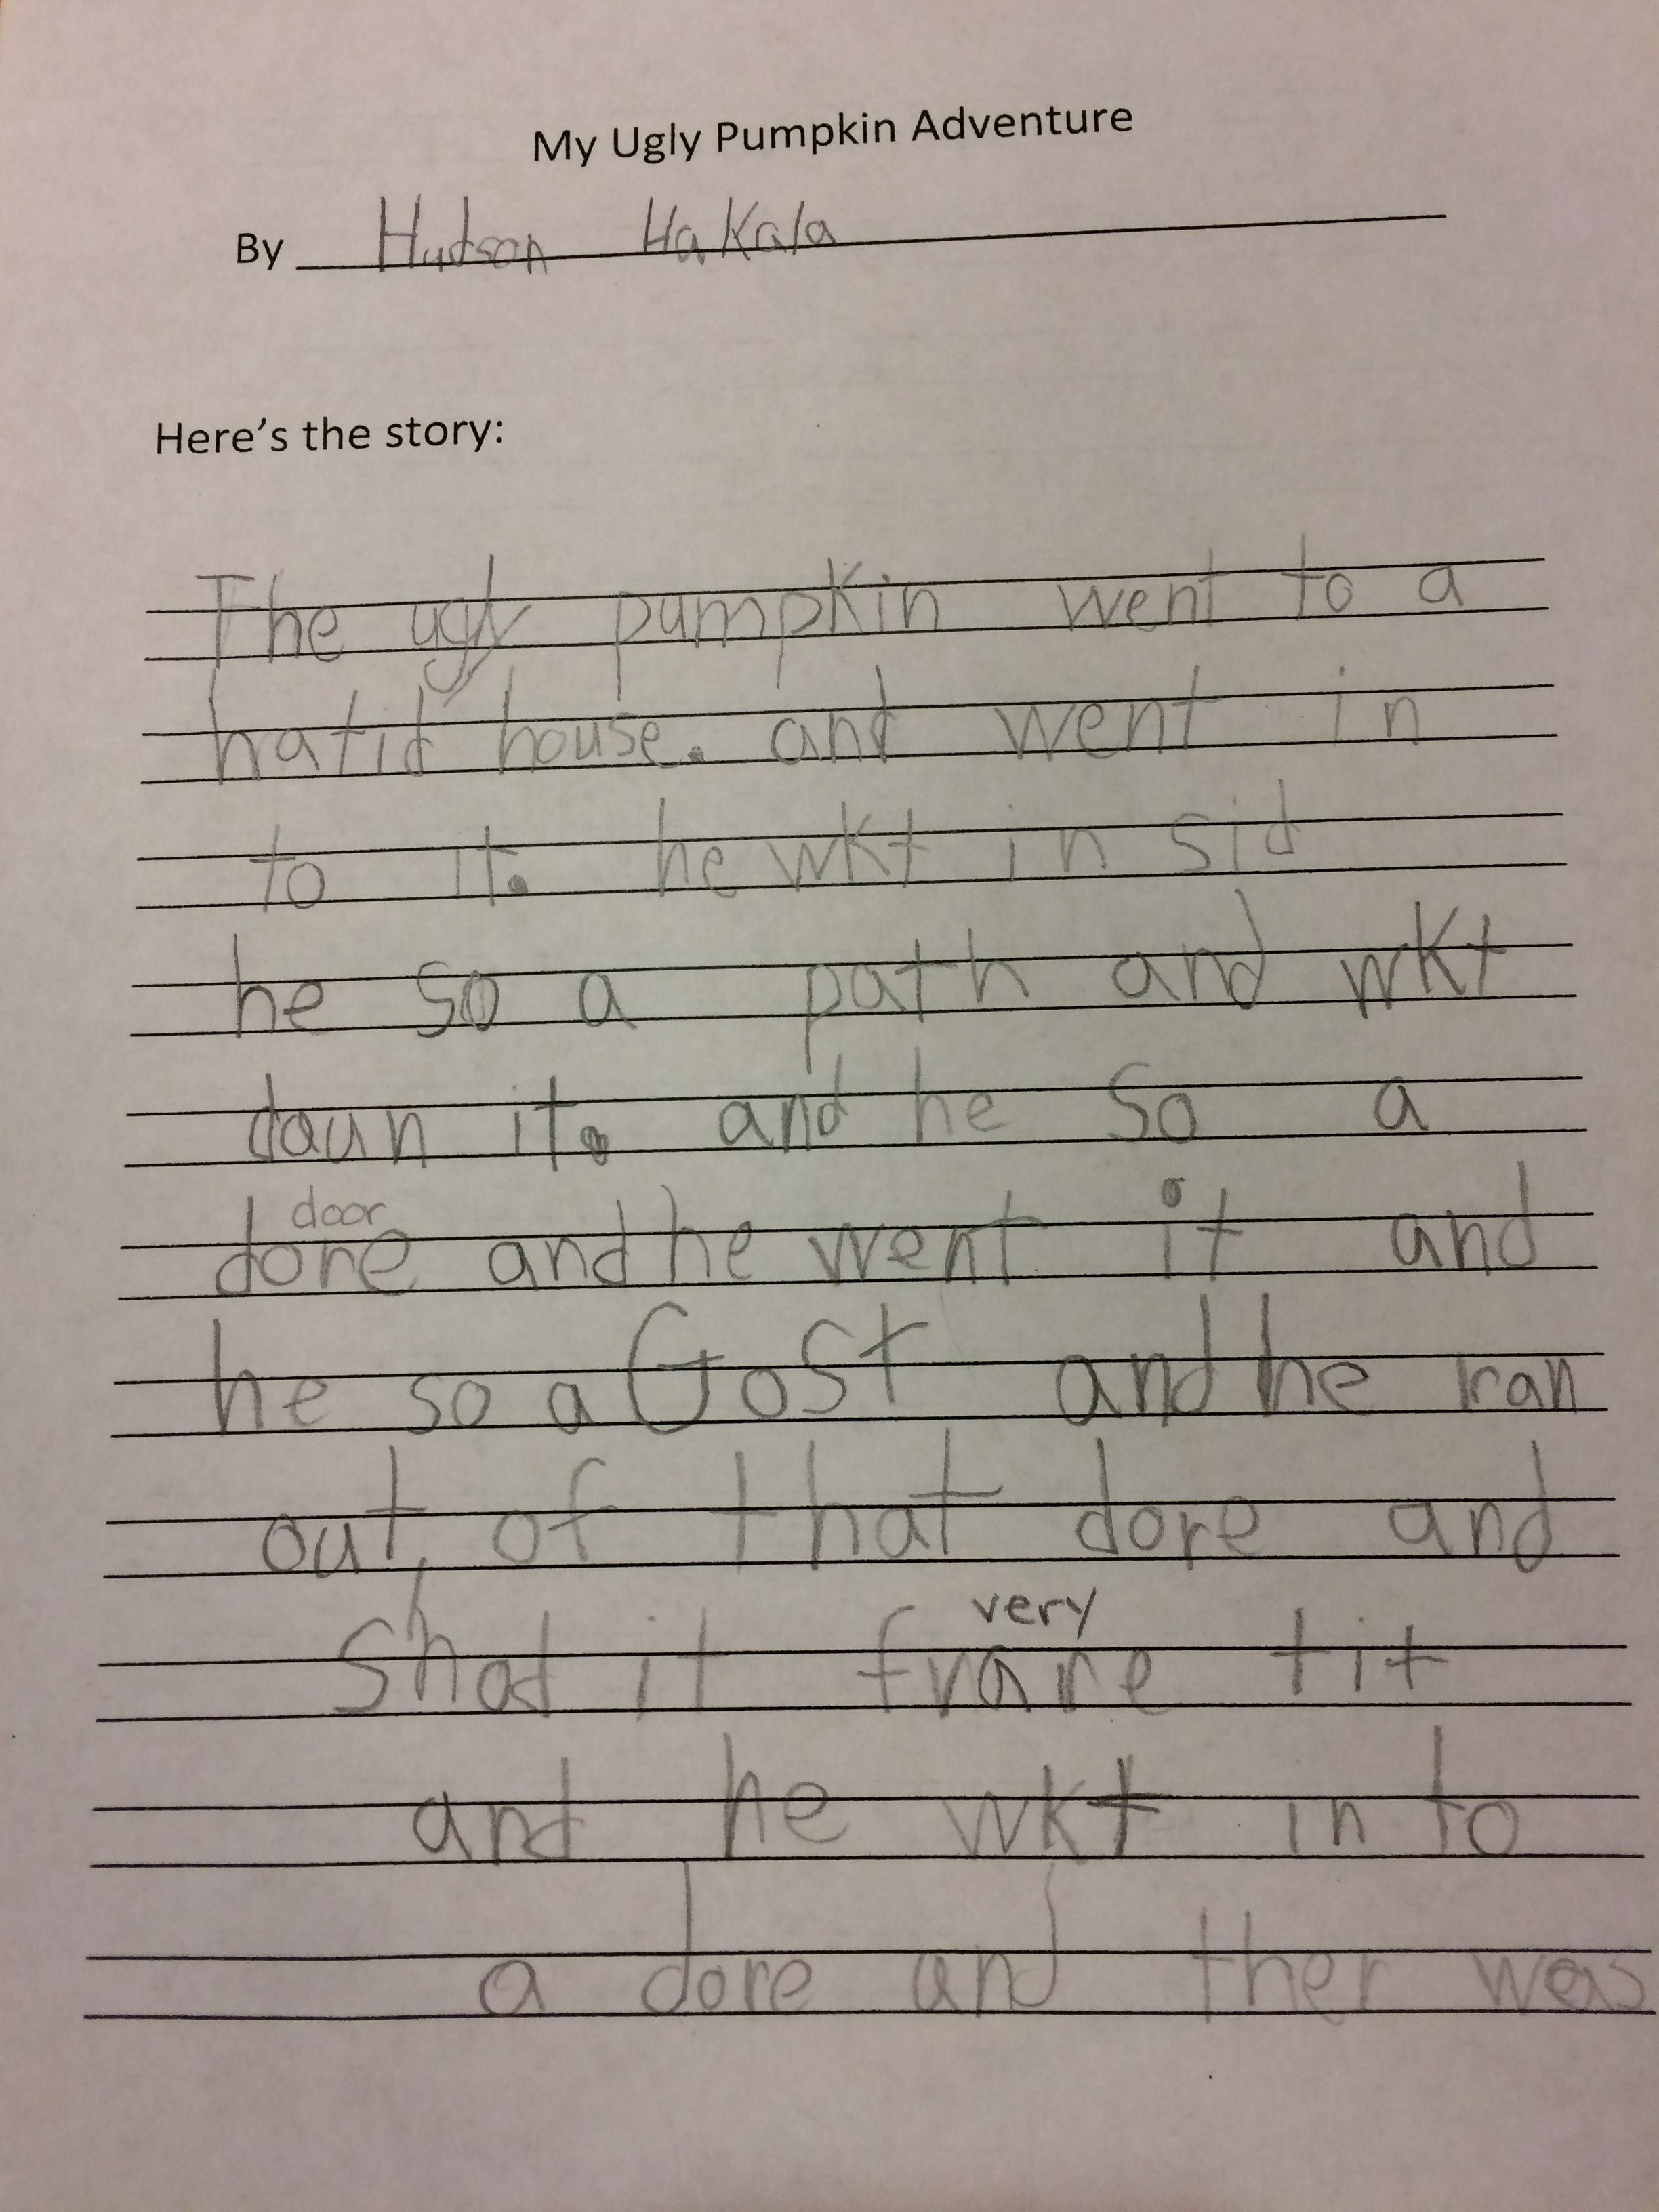 My Ugly Pumpkin Adventure
By Hudson HaKala
Here's the story:
The ugly pumpkin went to a
hatid house. and went in
to it. he wkt in sid
he so a path and wkt
daun it. and he so a
door
dore and he went it and
he so a Gost and he ran
out of that dore and
very
Shot it frare tit
and he wkt in to
a dore and ther was